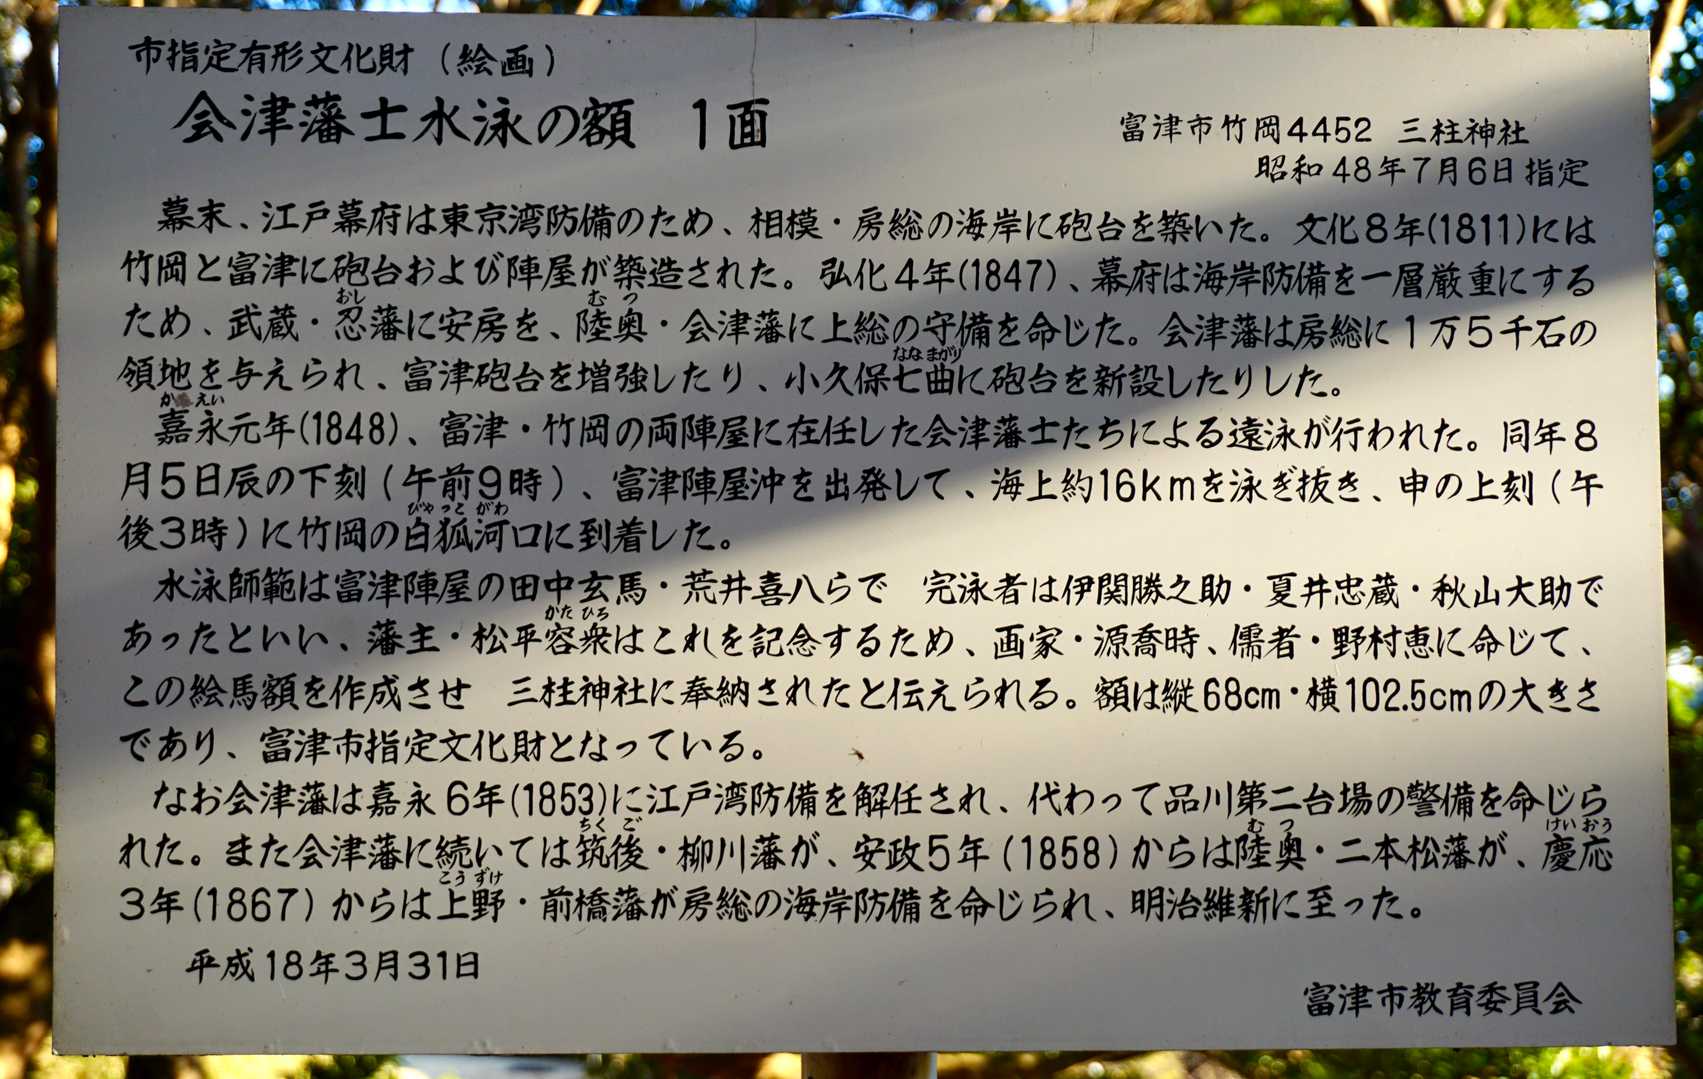 市指定有形文化財（絵画）
会津藩士水泳の額　1面
富津市竹岡4452　三柱神社
昭和48年7月6日指定
幕末、江戸幕府は東京湾防備のため、相模・房総の海岸に砲台を築いた。文化8年(1811)には
竹岡と富津に砲台および陣屋が築造された。弘化4年(1847)、幕府は海岸防備を一層厳重にする
おし　むつ
ため、武蔵・忍藩に安房を、陸奥・会津藩に上総の守備を命じた。会津藩は房総に1万5千石の
ななまがり
領地を与えられ、富津砲台を増強したり、小久保七曲に砲台を新設したりした。
かえい
嘉永元年(1848)、富津・竹岡の両陣屋に在任した会津藩士たちによる遠泳が行われた。同年8
月5日辰の下刻（午前9時）、富津陣屋沖を出発して、海上約16kmを泳ぎ抜き、申の上刻（午
びゃっこがわ
後3時）に竹岡の白狐河口に到着した。
水泳師範は富津陣屋の田中玄馬・荒井喜八らで　完泳者は伊関勝之助・夏井忠蔵・秋山大助で
かたひろ
あったといい、藩主・松平容衆はこれを記念するため、画家・源喬時、儒者・野村恵に命じて、
この絵馬額を作成させ　三柱神社に奉納されたと伝えられる。額は縦68cm・横102.5cmの大きさ
であり、富津市指定文化財となっている。
なお会津藩は嘉永6年(1853)に江戸湾防備を解任され、代わって品川第二台場の警備を命じら
ちくご　むつ　けいおう
れた。また会津藩に続いては筑後・柳川藩が、安政5年（1858）からは陸奥・二本松藩が、慶応
こうずけ
3年(1867）からは上野・前橋藩が房総の海岸防備を命じられ、明治維新に至った。
平成18年3月31日
富津市教育委員会